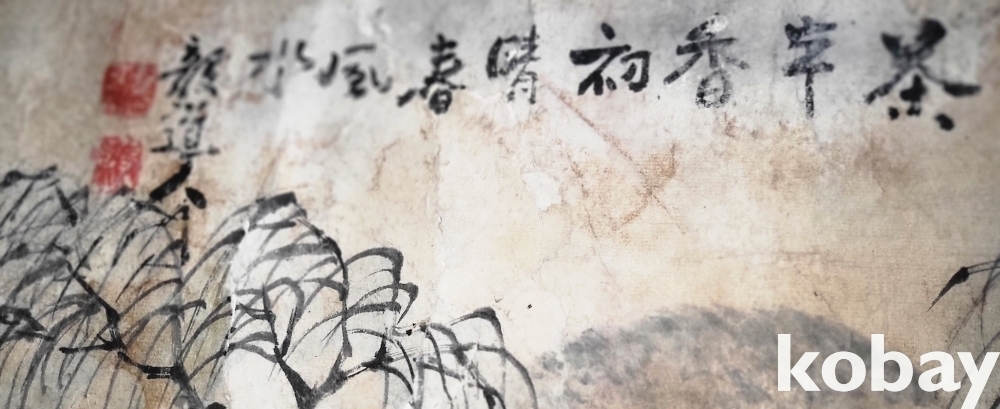 茶半香初晴春風水
毅道人
kobay